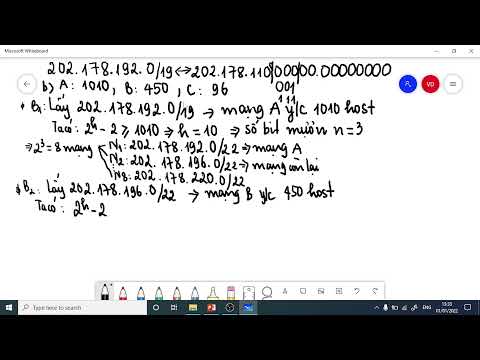 Microsoft Whiteboard
202.178.192.0/19 ↔ 202.178.110|000|00.00000000
001
111
b) A: 1010, B: 450, C: 96
* B₁: Lấy 202.178.192.0/19 → mạng A y/c 1010 host
Ta có: 2^h - 2 ≥ 1010 → h = 10 ⇒ số bit mượn n = 3
⇒ 2³ = 8 mạng
N₁: 202.178.192.0/22 → mạng A
N₂: 202.178.196.0/22 → mạng còn lại
N₈: 202.178.220.0/22
* B₂: Lấy 202.178.196.0/22 → mạng B y/c 450 host
Ta có: 2^h - 2
VD
Type here to search
ENG
15:35
01/01/2022